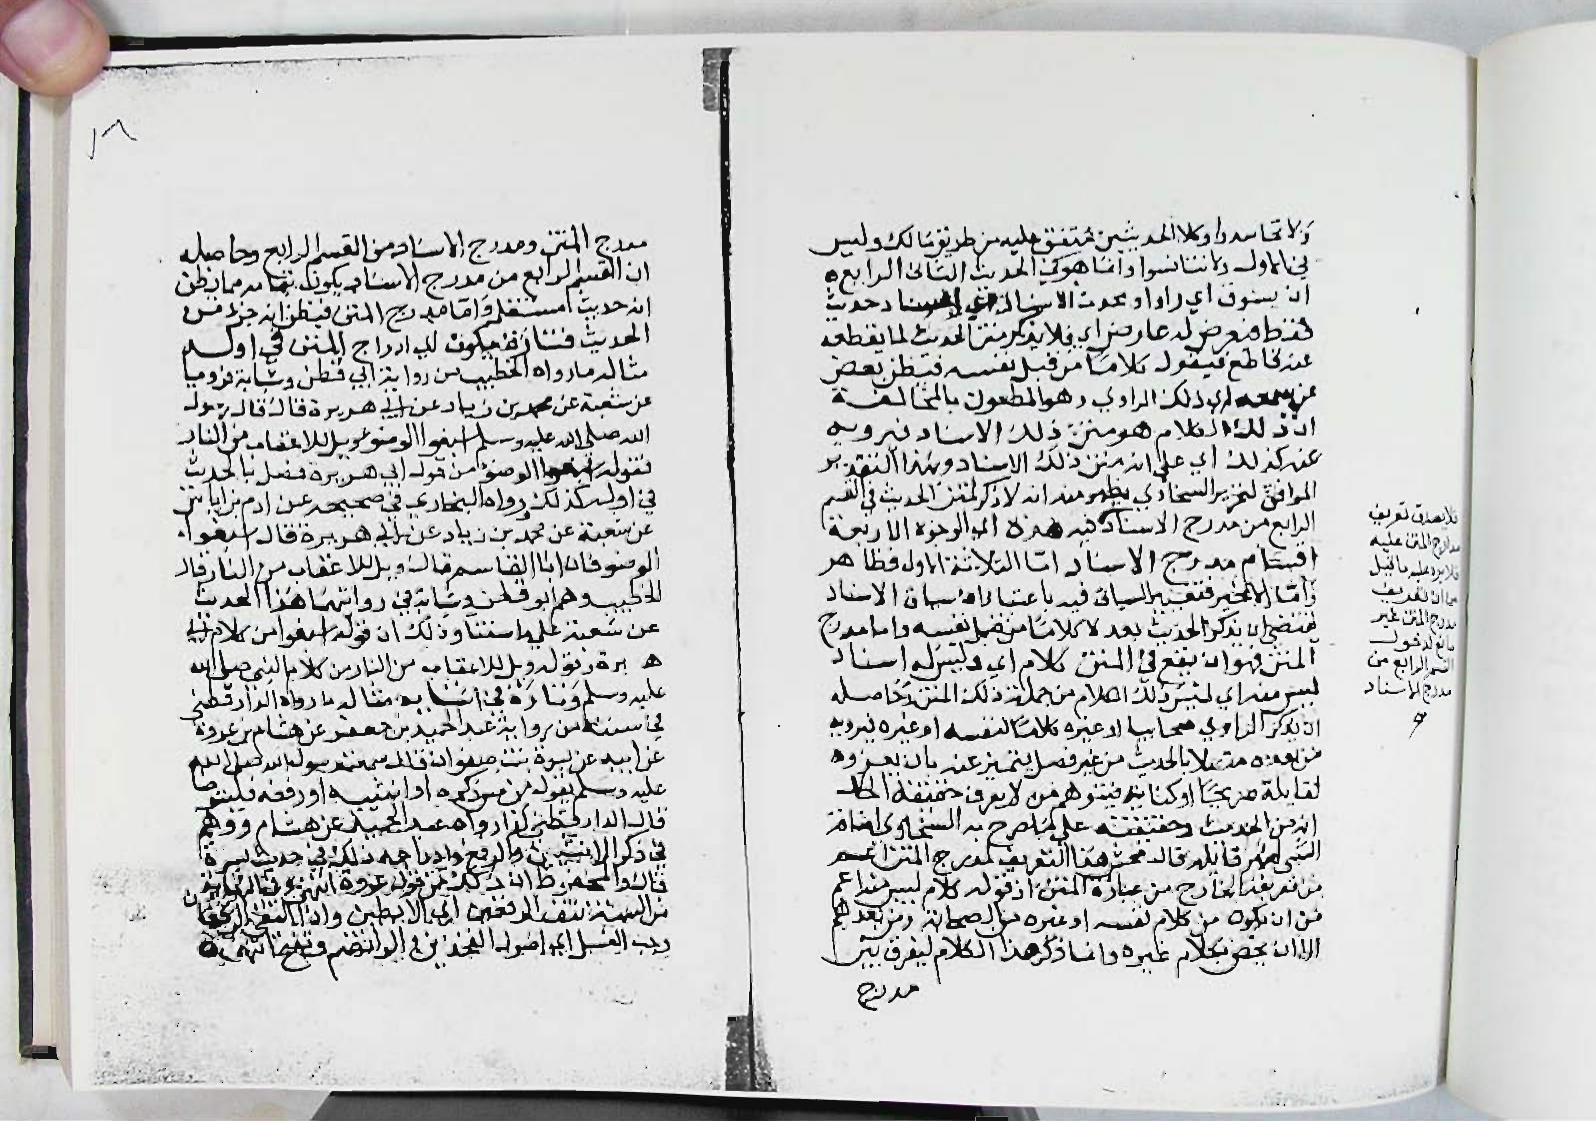 ولا تحاسدوا وكلا الحديثين متفق عليه من طريق مالك وليس
في الاول ولا تنافسوا وانما هو في الحديث الثاني الرابع
ان يسوق اي راو او محدث الاسناد اي اسناد حديث
فقط فيعرض له عارض اي فلا يذكر متن الحديث لما يقطعه
عنه قاطع فيقول كلاما من قبل نفسه فيظن بعض
من سمعه اي ذلك الراوي وهو المطعون بالمخالفة
ان ذلك الكلام هو متن ذلك الاسناد فيرويه
عنه كذلك اي على انه متن ذلك الاسناد وهذا التقدير
الموافق لتحرير السخاوي يظهر منه انه لا ذكر لمتن الحديث في القسم
الرابع من مدرج الاسناد فيه هذه اي الوجوه الاربعة
اقسام مدرج الاسناد اما الثلاثة الاول فظاهر
واما الاخير فتغيير السياق فيه باعتبار ان سياق الاسناد
يقتضي ان يذكر الحديث بعد لا كلاما من قبل نفسه واما مدرج
المتن فهو ان يقع في المتن كلام اي وليس له اسناد
ليس منه اي ليس ذلك الكلام من جملة ذلك المتن وحاصله
ان يذكر الراوي صحابيا او غيره كلاما لنفسه او غيره فيرويه
من بعده متصلا بالحديث من غير فصل يتميز عنه بان يعزوه
لقايله صريحا او كناية فيتوهم من لا يعرف حقيقة الحال
انه من الحديث وحقيقته على ما صرح به السخاوي اضافة
الشي لغير قايله قال محش هذا التعريف لمدرج المتن اعم
من تعريفه الخارج من عبارة المتن اذ قوله كلام ليس منه اعم
من ان يكون من كلام نفسه او غيره من الصحابة ومن بعدهم
الا ان يخص بكلام غيره وانما ذكر هذا الكلام ليفرق بين
مدرج
فلا يصدق تعريف
مدرج المتن عليه
فلا يرد عليه ما قيل
من ان تعريف
مدرج المتن غير
مانع لدخول
القسم الرابع من
مدرج الاسناد
مدرج المتن ومدرج الاسناد من القسم الرابع وحاصله
ان القسم الرابع من مدرج الاسناد يكون بتمامه مما يظن
انه حديث مستقل واما مدرج المتن فيظن انه جزء من
الحديث فتارة يكون اي ادراج المتن في اوله
مثاله ما رواه الخطيب من رواية ابي قطن وشبابة فرويا
عن شعبة عن محمد بن زياد عن ابي هريرة قال قال رسول
الله صلى الله عليه وسلم اسبغوا الوضوء ويل للاعقاب من النار
فقوله اسبغوا الوضوء من قول ابي هريرة فصل بالحديث
في اوله كذلك رواه البخاري في صحيحه عن ادم بن ابي اياس
عن شعبة عن محمد بن زياد عن ابي هريرة قال اسبغوا
الوضوء فان ابا القاسم قال ويل للاعقاب من النار قال
الخطيب وهم ابو قطن وشبابة في روايتهما هذا الحديث
عن شعبة على ما سقنا وذلك ان قوله اسبغوا من كلام ابي
هريرة وقوله ويل للاعقاب من النار من كلام النبي صلى الله
عليه وسلم وتارة في اثنايه مثاله ما رواه الدارقطني
في سننه من رواية عبد الحميد بن جعفر عن هشام بن عروة
عن ابيه عن بسرة بنت صفوان قالت سمعت رسول الله صلى الله
عليه وسلم يقول من مس ذكره او انثييه او رفغه فليتوضا
قال الدارقطني كذا رواه عبد الحميد عن هشام ووهم
في ذكر الانثيين والرفغ وادراجه ذلك في حديث بسرة
قال والمحفوظ ان ذلك من قول عروة انتهى وفي النهاية
من السنة نتف الرفغين اي الابطين واذا التقى الرفغان
وجب الغسل اي اصول الفخذين في الوا تضم وتفتح انتهى